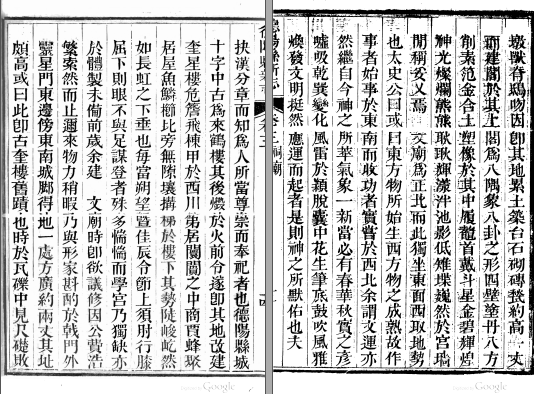 墩獸脊鴟吻因卽其地累土築台石砌磚甃約高一丈
而建閣於其上閣爲八隅象八卦之形四壁塗丹八方
創素范金合土塑像於其中履龍首戴斗星金碧輝煌
神光燦爛熊熊耿耿輝漾泮池影低雉堞巍然於宮墻
閒稱妥又焉 文廟爲正北而此獨坐東面西取地勢
也太史公曰或曰東方物所始生西方物之成熟故作
事者始事於東南而收功者實嘗於西北余謂文運亦
然繼自今神之所華氣象一新當必有春華秋實之彥
噓吸乾巽變化風雷於穎脫囊中花生筆底鼓吹風雅
煥發文明挺然應運而起者是則神之所默佑也夫
德陽縣新志 卷三 祠廟
抉漢分章而知爲人所當尊崇而奉祀者也德陽縣城
十字中古爲來鶴樓其後燬於火前令遂卽其地改建
奎星樓危簷飛棟甲於西川第居闤闠之中商賈蜂聚
居屋魚鱗櫛比旁無隙壤搆梯於樓下其勢陡峻屹然
如長虹之下垂也每當朔望暨佳辰令節上須肘行膝
屈下則眼不與足謀登者殊多惴惴而學宮乃獨缺亦
於體製未備前歲余建 文廟時卽欲議修因公費浩
繁索然而止邇來物力稍暇乃與形家斟酌於戟門外
靈星門東邊傍東南城腳得地一處方廣約兩丈其址
頗高或曰此卽古奎樓舊蹟也時於瓦礫中見尺礎敗
Google
Google